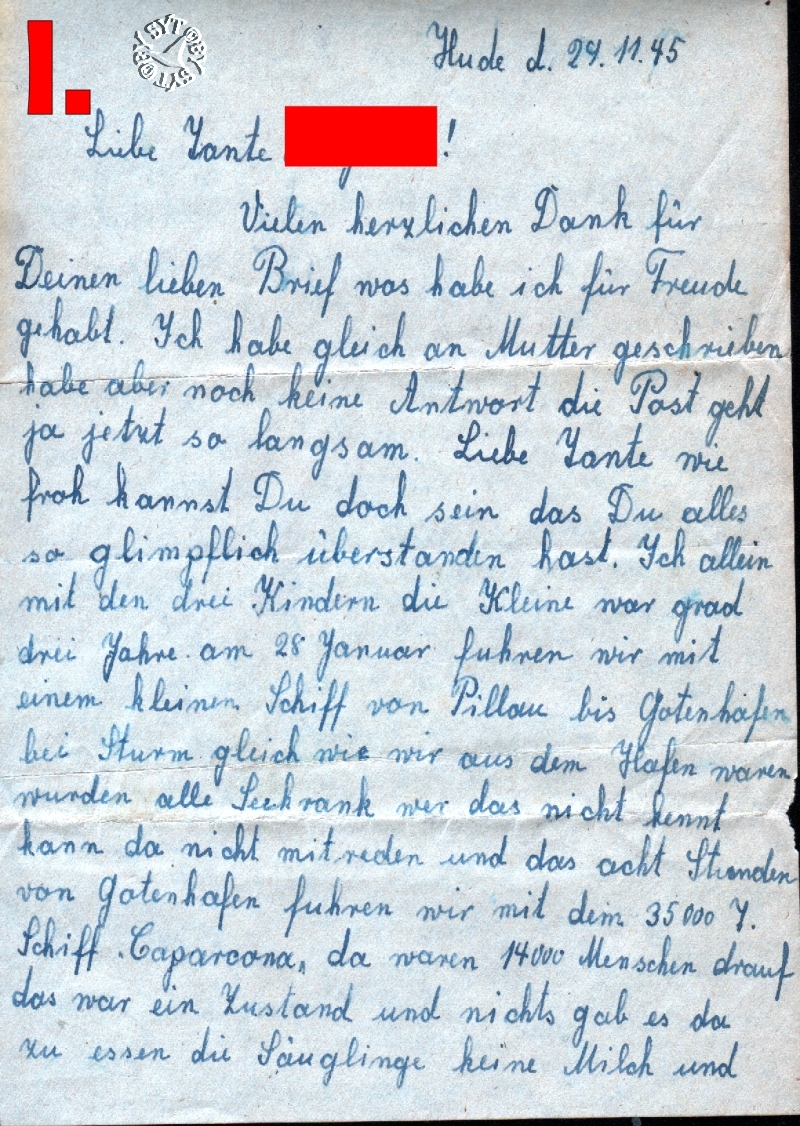 I.
SYTOSV SYTOSV
Hude d. 29.11.45
Liebe Tante !
Vielen herzlichen Dank für
Deinen lieben Brief was habe ich für Freude
gehabt. Ich habe gleich an Mutter geschrieben
habe aber noch keine Antwort die Post geht
ja jetzt so langsam. Liebe Tante wie
froh kannst Du doch sein das Du alles
so glimpflich überstanden hast. Ich allein
mit den drei Kindern die Kleine war grad
drei Jahre am 28 Januar fuhren wir mit
einem kleinen Schiff von Pillau bis Gotenhafen
bei Sturm gleich wie wir aus dem Hafen waren
wurden alle Seekrank wer das nicht kennt
kann da nicht mitreden und das acht Stunden
von Gotenhafen fuhren wir mit dem 35000 T.
Schiff „Caparcona„ da waren 14000 Menschen drauf
das war ein Zustand und nichts gab es da
zu essen die Säuglinge keine Milch und